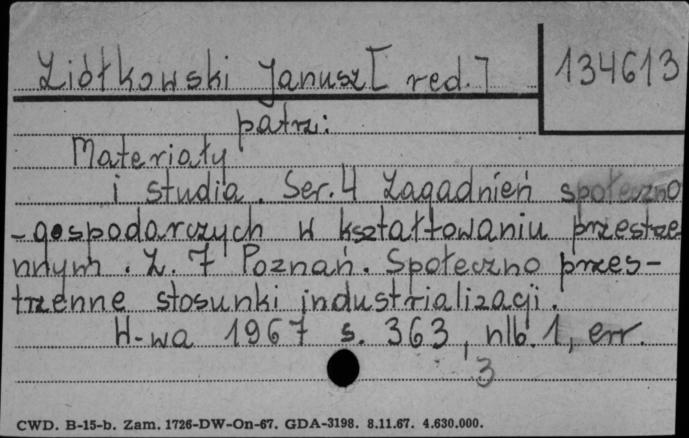 Ziółkowski Janusz [red.]
134613
patrz:
Materiały
i studia. Ser. 4 Zagadnień społeczno
-gospodarczych w kształtowaniu przestrze
nnym. Z. 7 Poznań. Społeczno przes-
trzenne stosunki industrializacji.
W-wa 1967 s. 363, nlb. 1, err.
3
CWD. B-15-b. Zam. 1726-DW-On-67. GDA-3198. 8.11.67. 4.630.000.